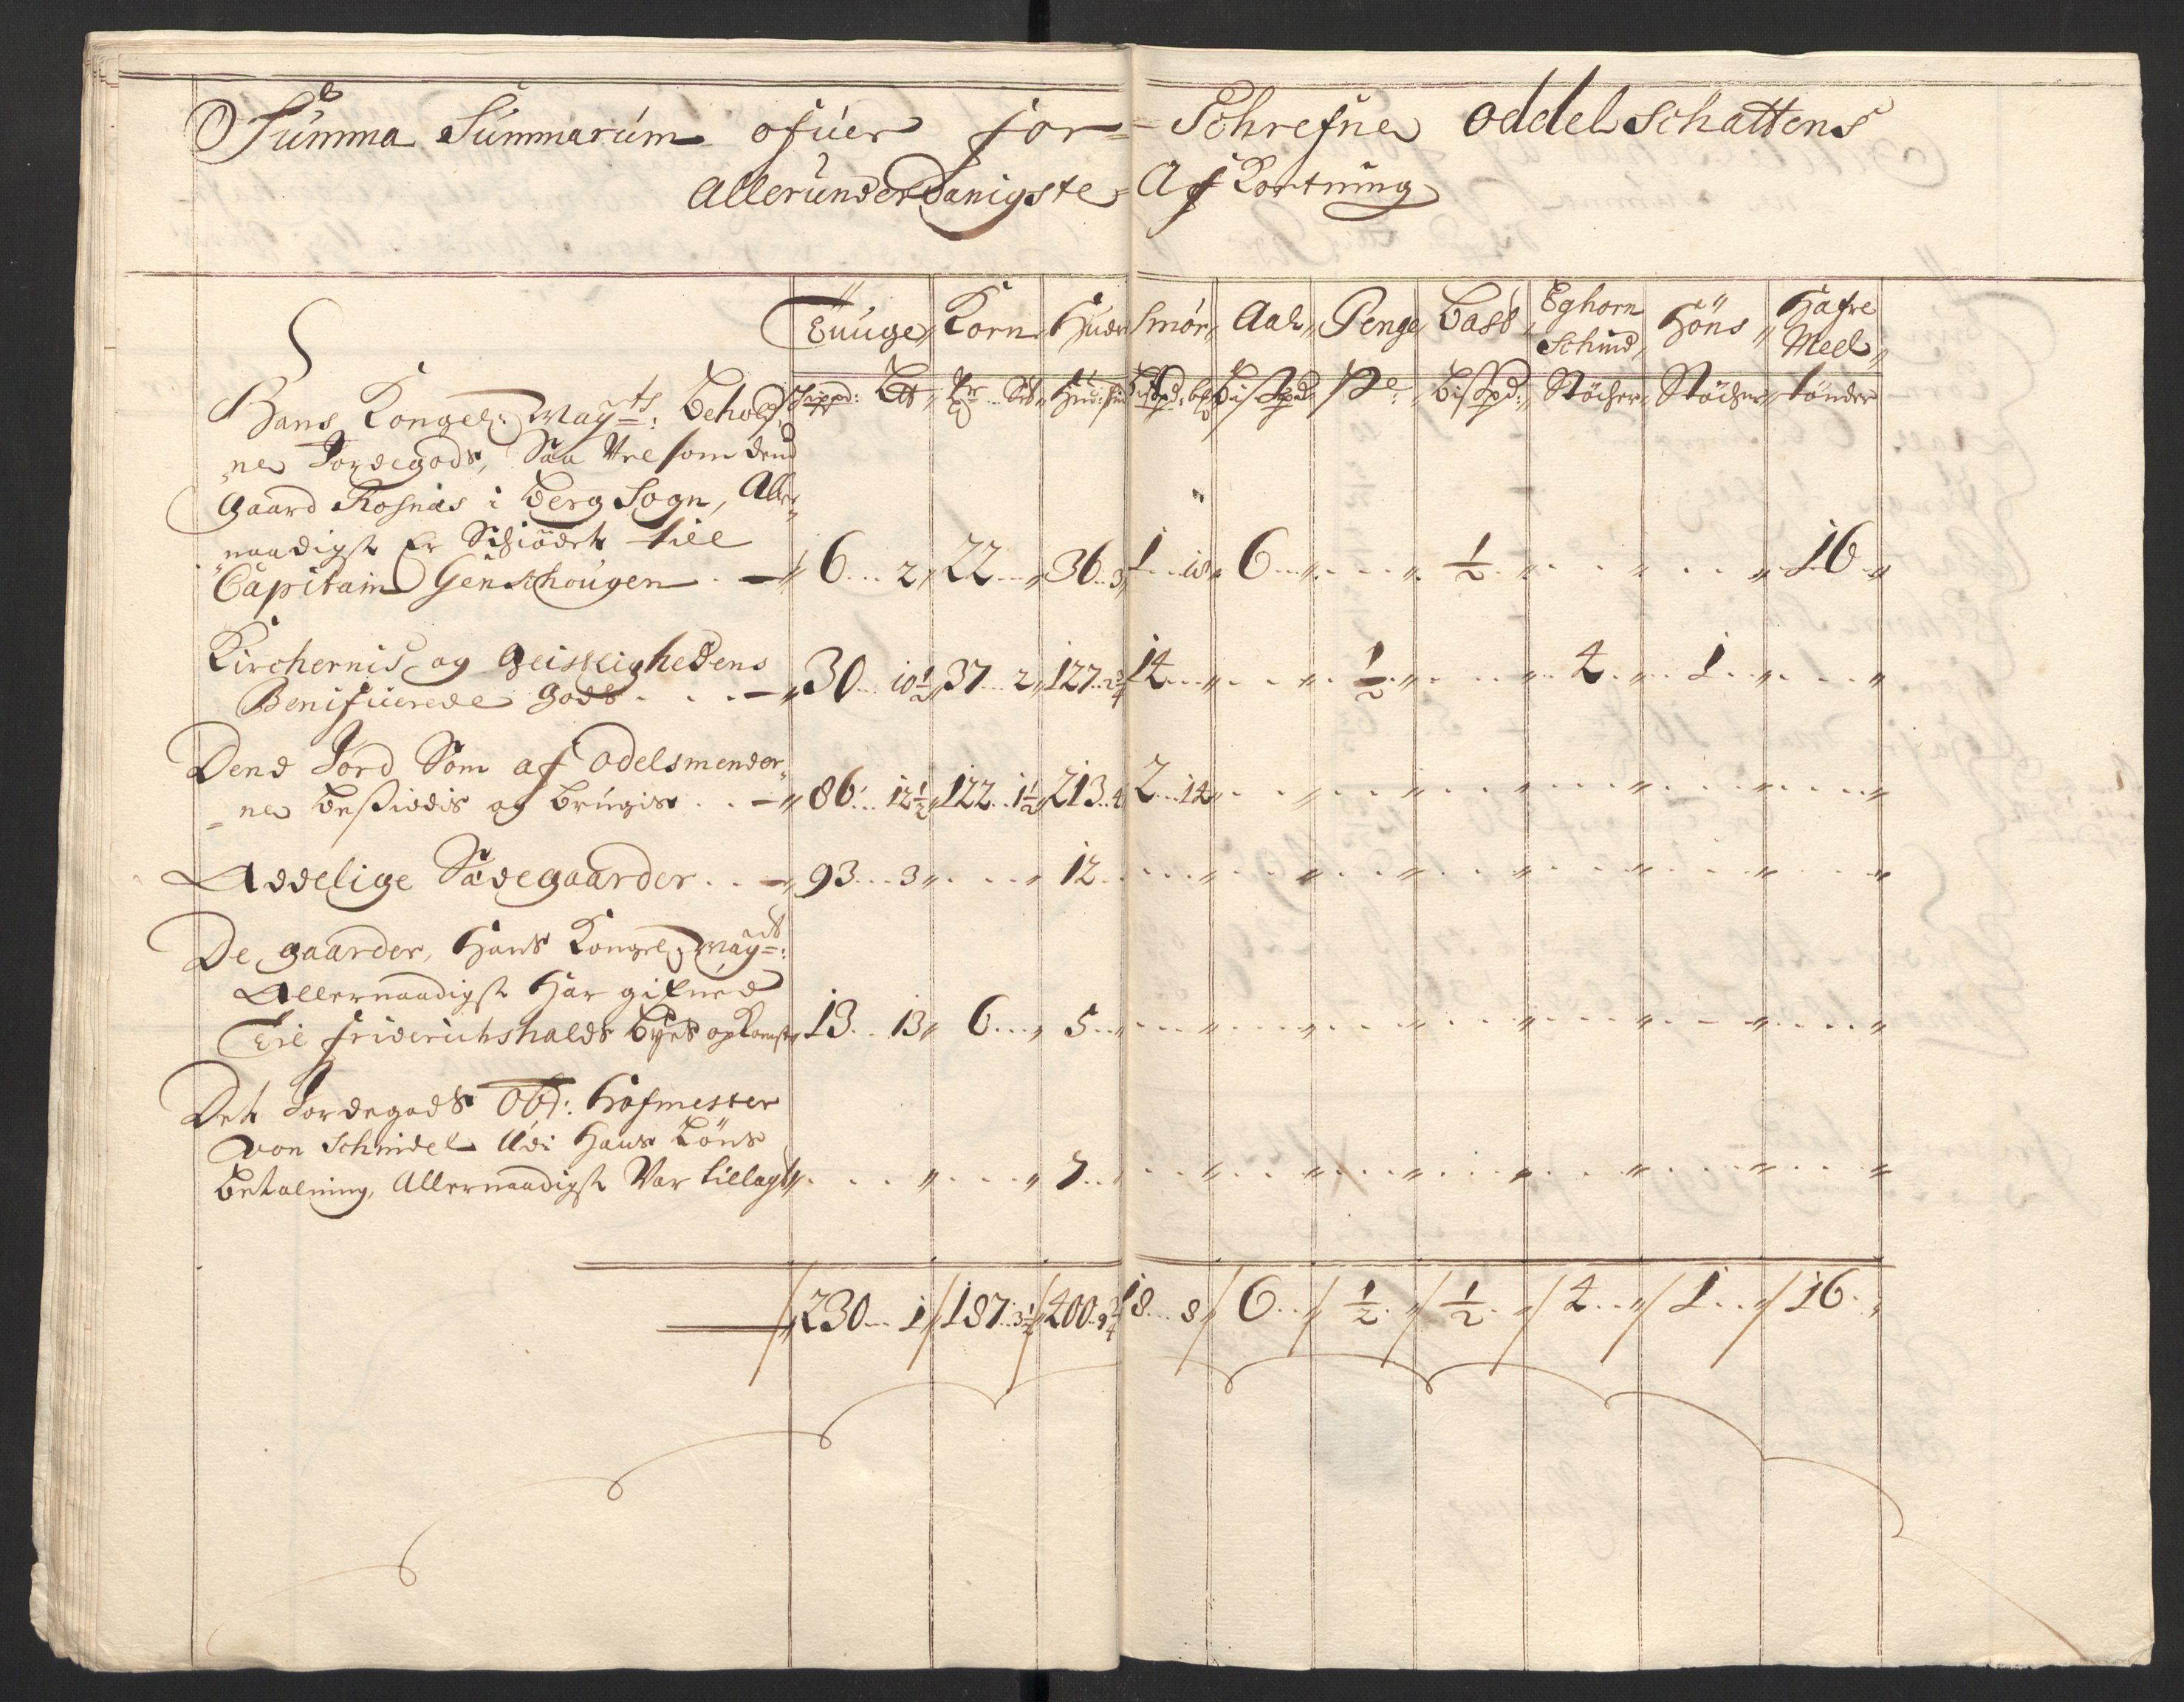 Summa Summarum ofuer for= =Schrefne oddel Schattens
Allerunderdanigste= Af Kortning
Tüüge Korn Huder Smör Aal Penge Bast Eghorn Schind Höns Hafre Meel
Schippd: Bisspd: Bispd: Stöcher Stöcher tönder
Hans Kongel: Mayts: Beholf,,
ne Jordegods, Saa vel som dend
Gaard Rosnäs i Berg Sogn, Aller,,
naadigst Er Schiödet till
Capitain Genschougen . — 6 . . . 2 22 . . . 36 . . 3 1 . . . 18 6 . . . . . . 1/2 . . . . . . 16
Kirchernis og Geistlighedens
Benifiuerede Gods . . . — 30 . . . 10 1/2 37 . . . 2 127 . . 2 3/4 14 . . . . . . 1/2 . . . 4 . . 1 . . . . .
Dend Jord Som af Odelsmender,,
=ne besiddis og brugis . . — 86 . . . 12 1/2 122 . . 1 1/2 213 . . 4 2 . . . 14
Addelige Sädegaarder . . — 93 . . . 3 . . . . 12
De gaarder, Hans Kongel: Mayts:
Allernaadigst Har gifued
Til Friderichshalds Byes opkomst 13 . . . 13 6 . . . 5
Det Jordegods Obr: Hofmester
von Schindel Udi Hans Löns
betalning, Allernaadigst Var tillagt . . . . . . . 7
230 . . . 1 187 . . 3 1/2 400 . . 9 3/4 18 . . . 8 6 . . 1/2 . . 1/2 . . 4 . . 1 . . 16